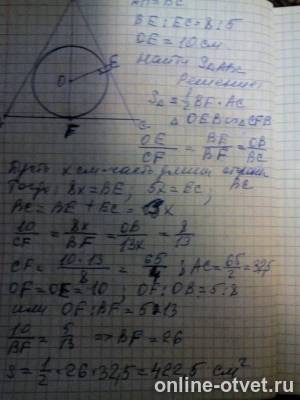 AB = BC
BE : EC = 8 : 5
OE = 10 см
Найти S△ABC
Решение:
S△ = 1/2 BF · AC
△ OEB ∾ △ CFB
OE/CF = BE/BF = OB/BC
Пусть x см - часть длины BC
Тогда, 8x = BE; 5x = EC;
BC = BE + EC = 13x
10/CF = 8x/BF = OB/13x = 8/13
CF = 10·13/8 = 65/4; AC = 65/2 = 32,5
OF = OE = 10; OF : OB = 5 : 8
или OF : BF = 5 : 13
10/BF = 5/13 => BF = 26
S = 1/2 * 26 * 32,5 = 422,5 см²
E
O
F
C
online-otvet.ru